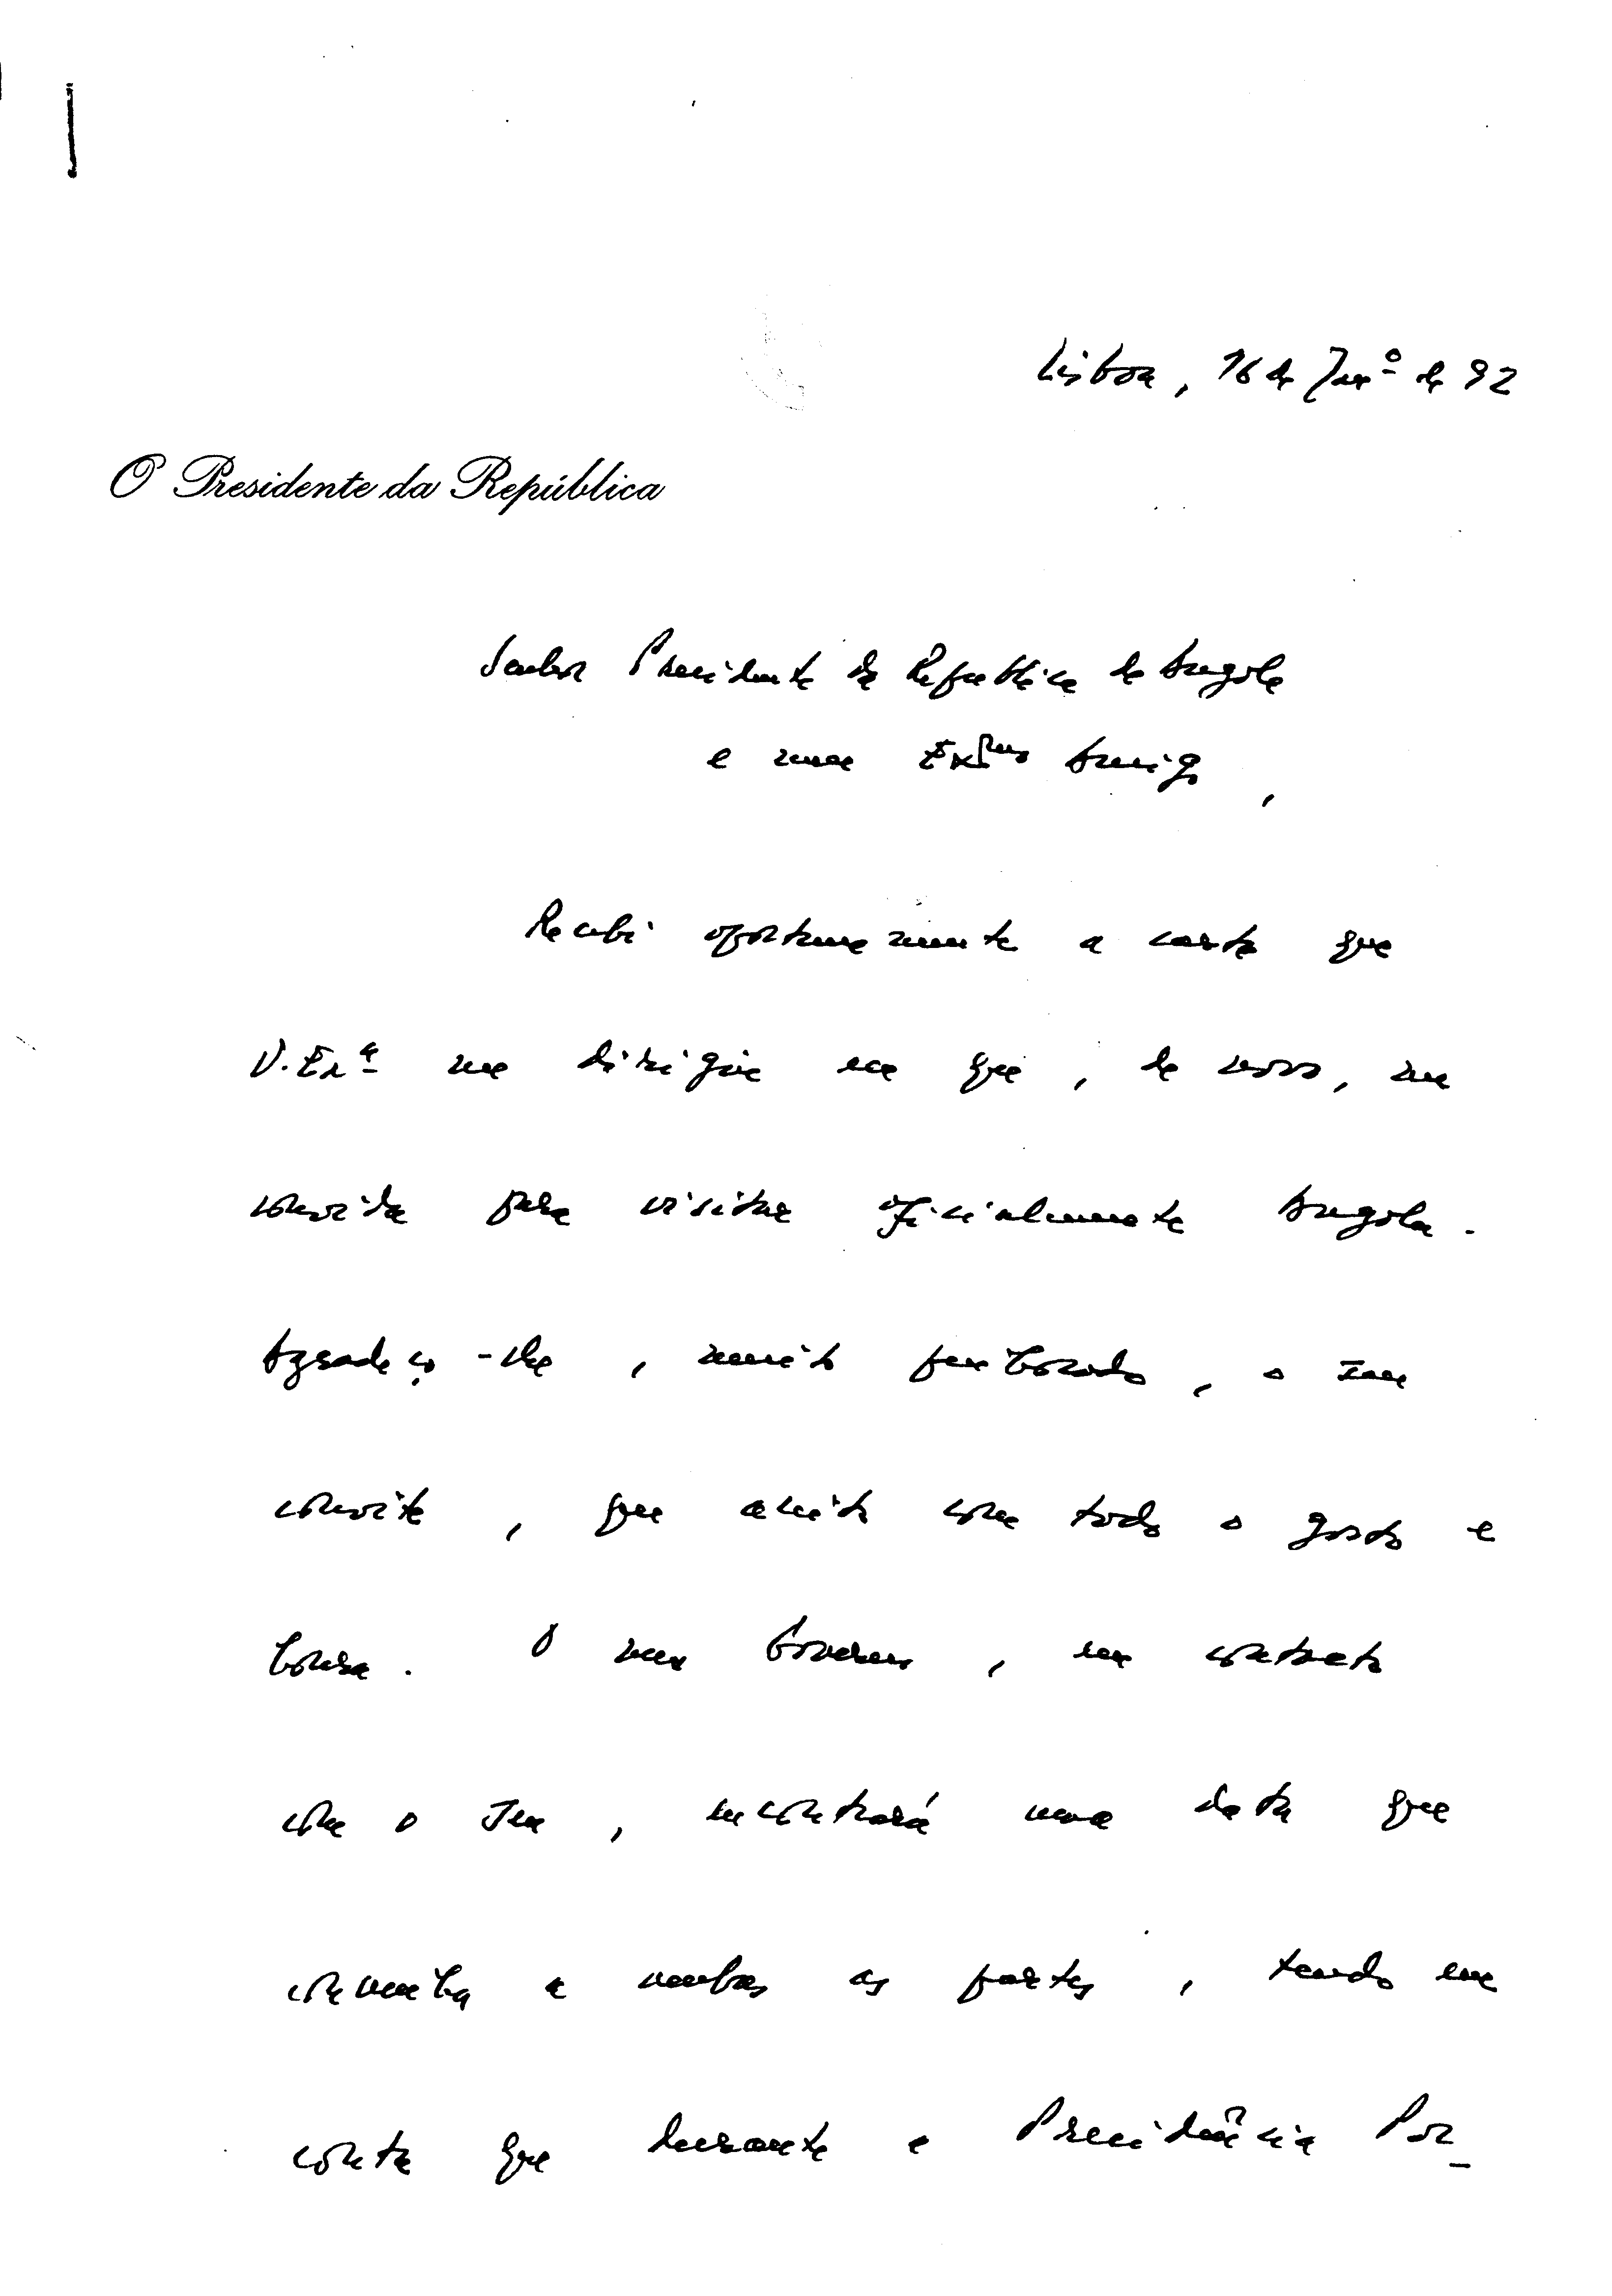 Lisboa, 16 de Janº de 92
O Presidente da República
Senhor Presidente da República de Angola
e meu Exmo Amigo,
Recebi oportunamente a carta que
V. Exª me dirigiu em que, de novo, me
convida para visitar oficialmente Angola.
Agradeço-lhe, muito penhorado, o seu
convite, que aceito com todo o gosto e
honra. O meu Governo, em contacto
com o Seu, encontrará uma data que
convenha a ambas as partes, tendo em
conta que durante a Presidência Por-